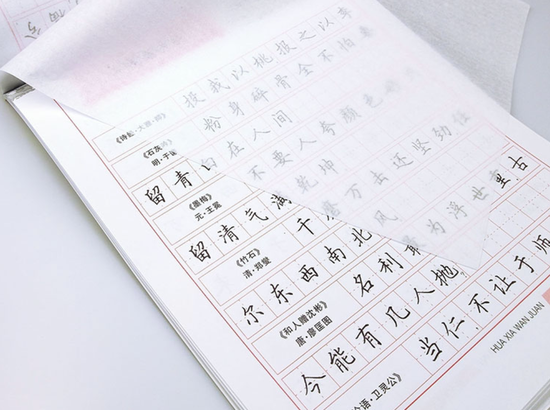 《诗经·大雅·抑》 投我以桃报之以李
《石灰 粉身碎骨全不怕要
明·于谦
留青白在人间
《墨梅》 不要人夸颜色好
元·王冕
留清气满乾坤
《竹石》 千磨万击还坚劲任
清·郑燮
尔东西南北风
《和人赠沈彬》 名利最为浮世重古
唐·廖匡图
今能有几人抛
论语·卫灵公》 当仁不让于师
HUA XIA WAN JUAN